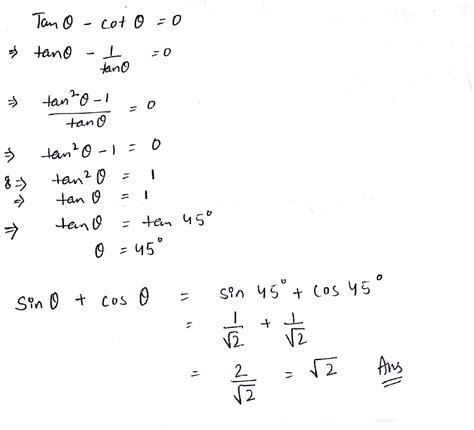 Tan θ - cot θ = 0
⇒ tan θ - 1/tan θ = 0
⇒ (tan² θ - 1)/tan θ = 0
⇒ tan² θ - 1 = 0
8 ⇒ tan² θ = 1
⇒ tan θ = 1
⇒ tan θ = tan 45°
θ = 45°
Sin θ + cos θ = sin 45° + cos 45°
= 1/√2 + 1/√2
= 2/√2 = √2 Ans